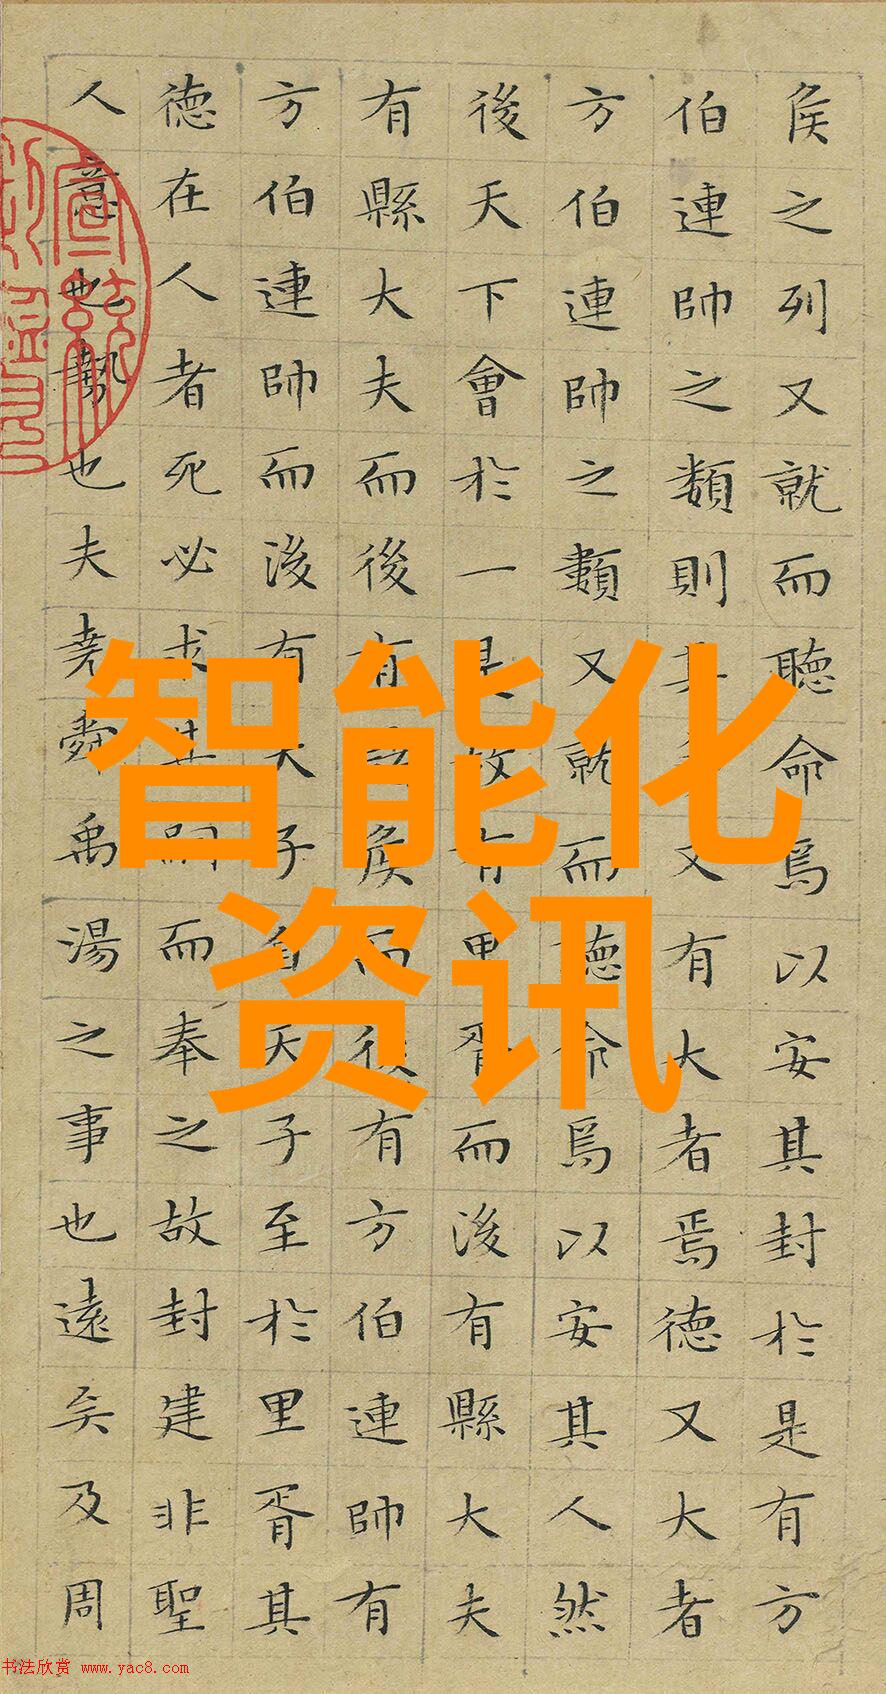 侯之列又就而聽命焉以安其封於是有方
伯連帥之類則其又有大者焉德又大者
方伯連帥之類又就而聽命焉以安其人然
後天下會於一是故有里胥而後有縣大夫
有縣大夫而後有侯而後有方伯連帥有
方伯連帥而後有天子自天子至於里胥其
德在人者死必求其嗣而奉之故封建非聖
人意也勢也夫堯舜禹湯之事也遠矣及周
智能化
资讯
书法欣赏 www.yac8.com